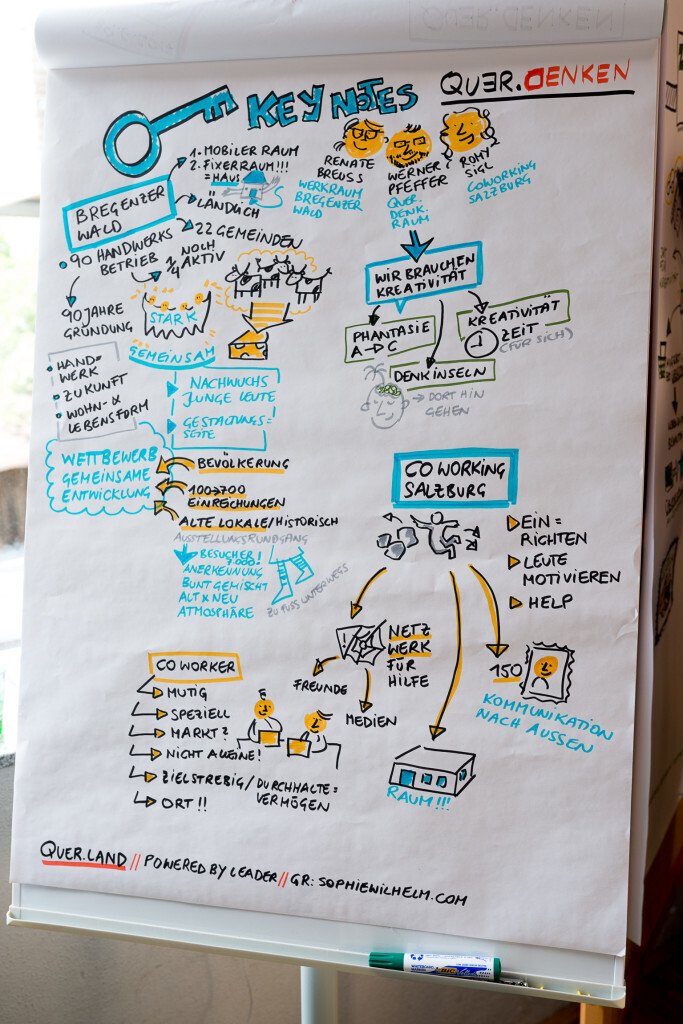 KEY NOTES
QUER.DENKEN
1. MOBILER RAUM
2. FIXERRAUM!!!
= HAUS
LÄNDLICH
BREGENZER
WALD
RENATE
BREUSS
WERKRAUM
BREGENZER
WALD
WERNER
PFEFFER
QUER.
DENK.
RAUM
ROMY
SIGL
COWORKING
SALZBURG
22 GEMEINDEN
90 HANDWERKS
BETRIEB
NOCH
AKTIV
90 JAHRE
GRÜNDUNG
STARK
GEMEINSAM
HAND-
WERK
ZUKUNFT
WOHN- &
LEBENSFORM
NACHWUCHS
JUNGE LEUTE
GESTALTUNGS=
SEITE
WIR BRAUCHEN
KREATIVITÄT
PHANTASIE
A → C
KREATIVITÄT
ZEIT
(FÜR SICH)
DENKINSELN
→ DORT HIN
GEHEN
WETTBEWERB
GEMEINSAME
ENTWICKLUNG
BEVÖLKERUNG
100→700
EINREICHUNGEN
ALTE LOKALE/HISTORISCH
AUSSTELLUNGSRUNDGANG
BESUCHER!
7.000!
ANERKENNUNG
BUNT GEMISCHT
ALT & NEU
ATMOSPHÄRE
ZU FUSS UNTERWEGS
CO WORKING
SALZBURG
EIN=
RICHTEN
LEUTE
MOTIVIEREN
HELP
NETZ
WERK
FÜR
HILFE
FREUNDE
MEDIEN
150
KOMMUNIKATION
NACH AUSSEN
RAUM!!!
CO WORKER
MUTIG
SPEZIELL
MARKT?
NICHT ALLEINE!
ZIELSTREBIG/DURCHHALTE=
VERMÖGEN
ORT!!
QUER.LAND // POWERED BY LEADER // GR: SOPHIEWILHELM.COM
BIC